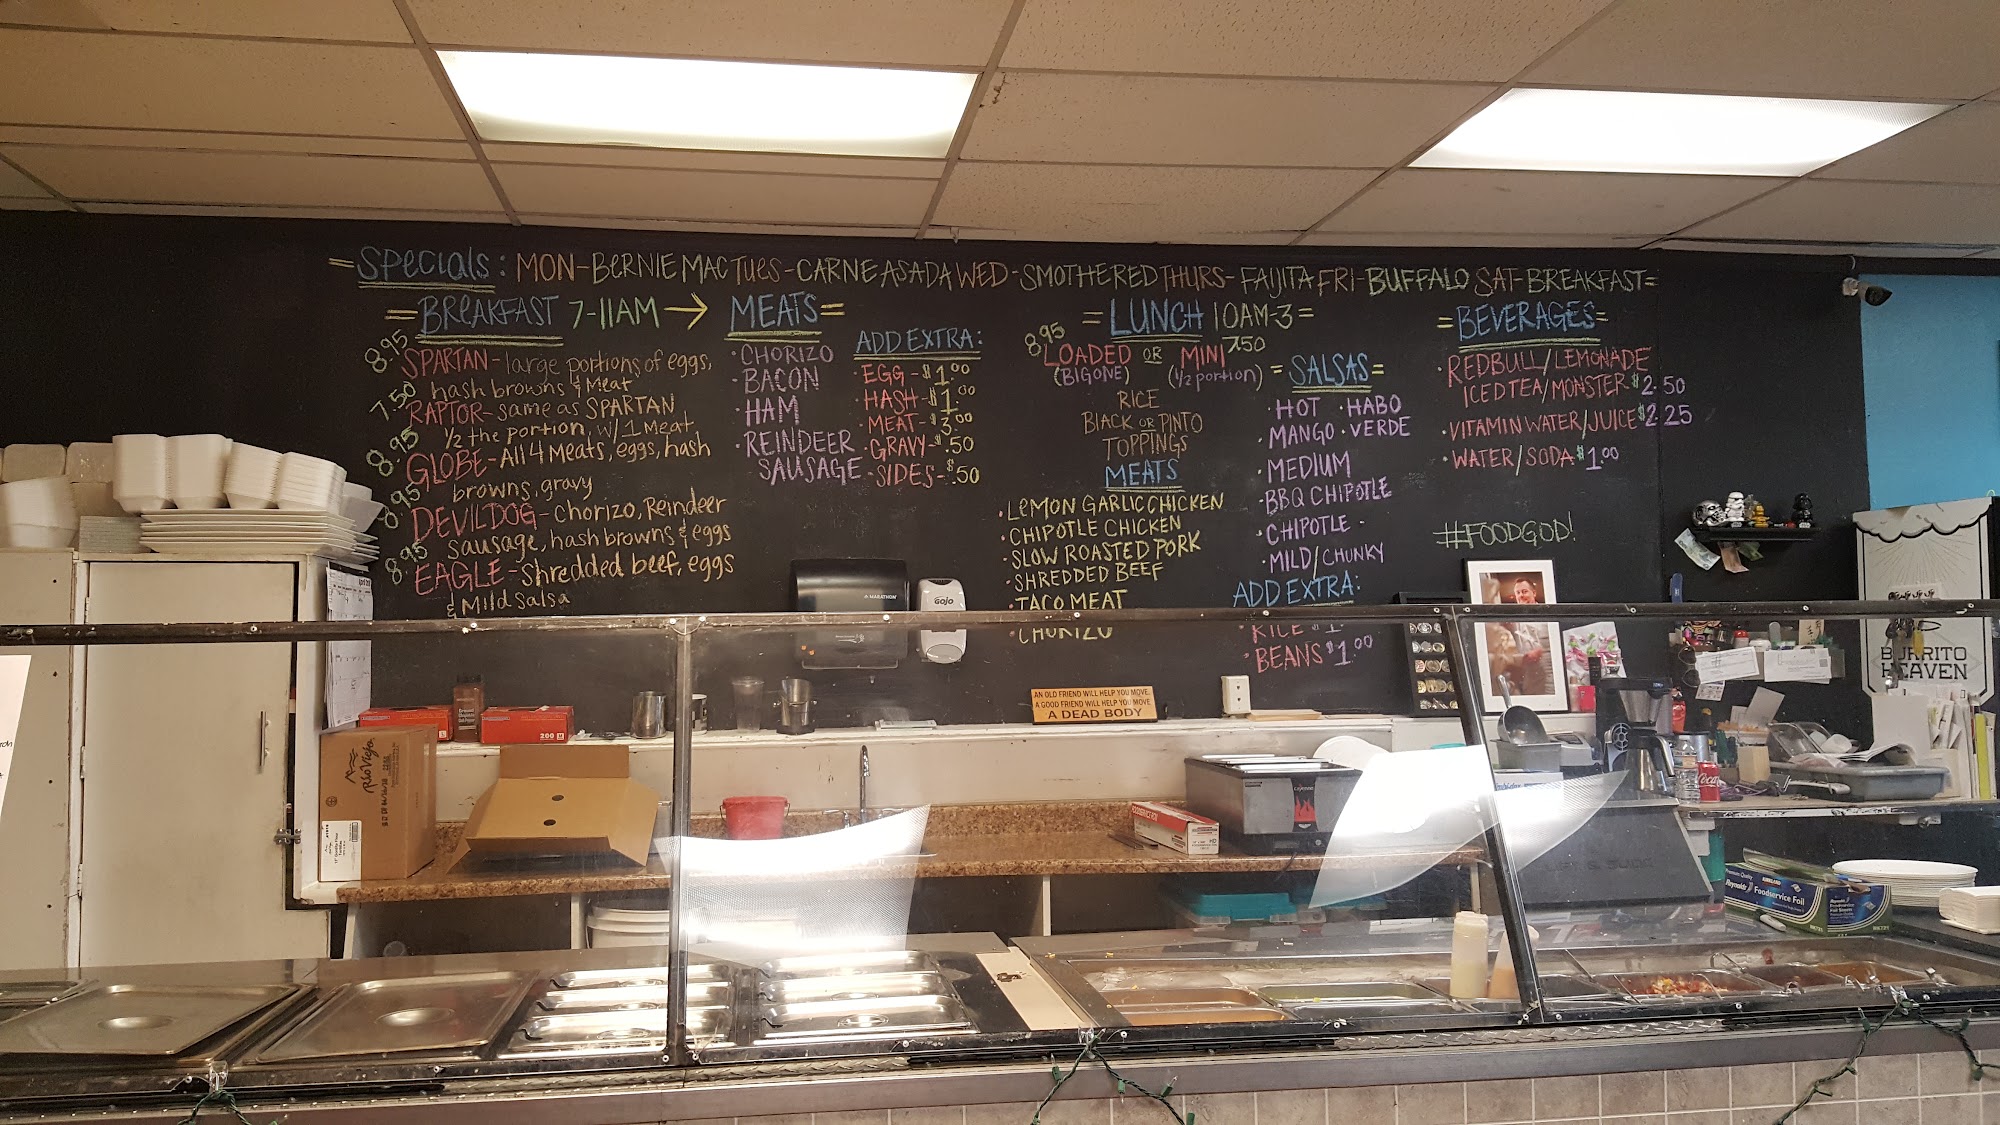 =Specials: MON-BERNIE MAC TUES-CARNE ASADA WED-SMOTHERED THURS-FAIJITA FRI-BUFFALO SAT-BREAKFAST=
=BREAKFAST 7-11AM→
8.95 SPARTAN-large portions of eggs,
hash browns & Meat
7.50 RAPTOR-same as SPARTAN
1/2 the portion, w/1 Meat
8.95 GLOBE-All 4 Meats, eggs, hash
browns, gravy
8.95 DEVILDOG-Chorizo, Reindeer
sausage, hash browns & eggs
8.95 EAGLE-Shredded beef, eggs
& Mild Salsa
MEATS=
·CHORIZO
·BACON
·HAM
·REINDEER
SAUSAGE
ADD EXTRA:
·EGG-$1.00
·HASH-$1.00
·MEAT-$3.00
·GRAVY-$.50
·SIDES-$.50
=LUNCH 10AM-3=
8.95 LOADED OR MINI 7.50
(BIG ONE) (1/2 portion)
RICE
BLACK OR PINTO
TOPPINGS
MEATS
·LEMON GARLIC CHICKEN
·CHIPOTLE CHICKEN
·SLOW ROASTED PORK
·SHREDDED BEEF
·TACO MEAT
·CHORIZO
=SALSAS=
·HOT ·HABO
·MANGO ·VERDE
·MEDIUM
·BBQ CHIPOTLE
·CHIPOTLE·
·MILD/CHUNKY
ADD EXTRA:
·RICE $1.
·BEANS $1.00
=BEVERAGES=
·REDBULL/LEMONADE
ICED TEA/MONSTER $2.50
·VITAMIN WATER/JUICE $2.25
·WATER/SODA $1.00
#FOODGOD!
MARATHON
GOJO
AN OLD FRIEND WILL HELP YOU MOVE.
A GOOD FRIEND WILL HELP YOU MOVE
A DEAD BODY
BURRITO
HEAVEN
Rio Viejo
200
Reynolds
Foodservice Foil
KIRKLAND